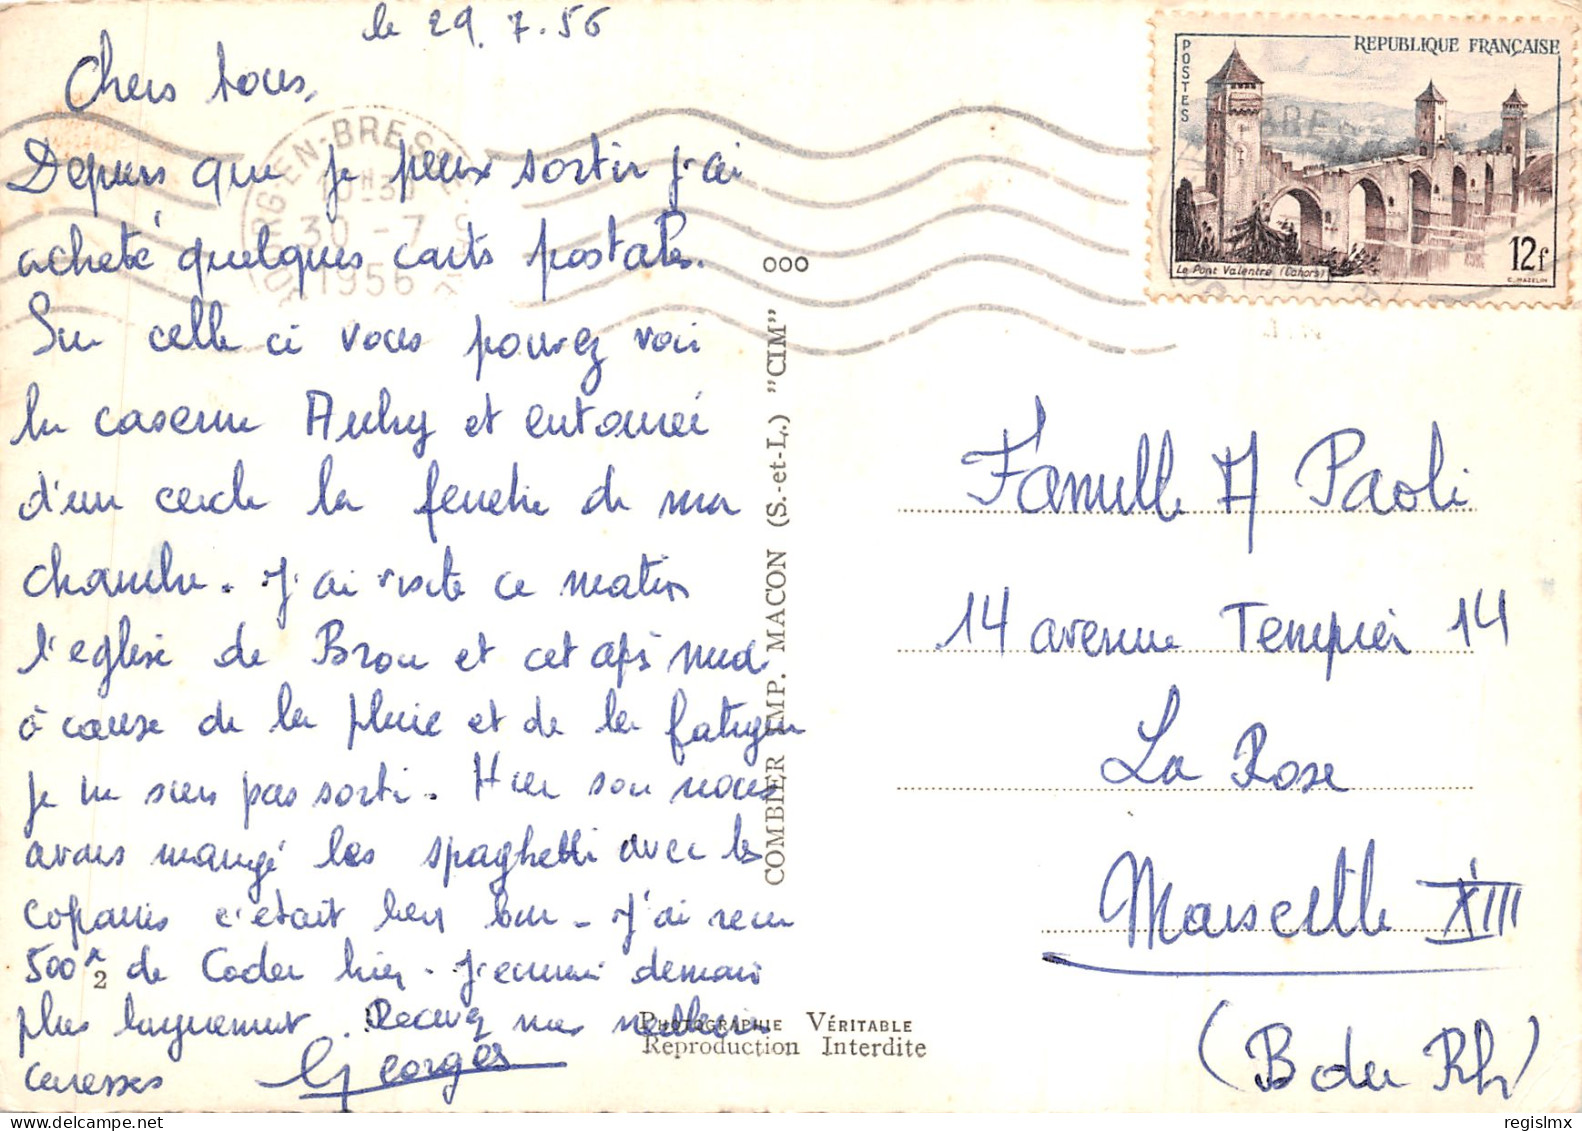 le 29.7.56
Chers tous,
Depuis que je peux sortir j'ai
acheté quelques carts postales.
Sur celle ci vous pouvez voir
la caserne Aubry et entouréé
d'un cercle la fenetre de ma
chambre. J'ai visité ce matin
l'eglise de Brou et cet après midi
à cause de la pluie et de la fatigue
je ne suis pas sorti. Hier soir nous
avons mangé les spaghetti avec les
copains c'était bien bon - J'ai recu
500 de Coder hier. J'ecrirai demain
plus longuement. Recevez mes meilleures
caresses Georges
REPUBLIQUE FRANÇAISE
POSTES
Le Pont Valentré (Cahors)
12f
C. MAZELIN
BOURG-EN-BRESSE
30 -7
1956
000
COMBIER IMP. MACON (S.-et-L.) "CIM"
Famille A Paoli
14 avenue Tempier 14
La Rose
Marseille XIII
(B du Rh)
2
PHOTOGRAPHIE VÉRITABLE
Reproduction Interdite
regislmx